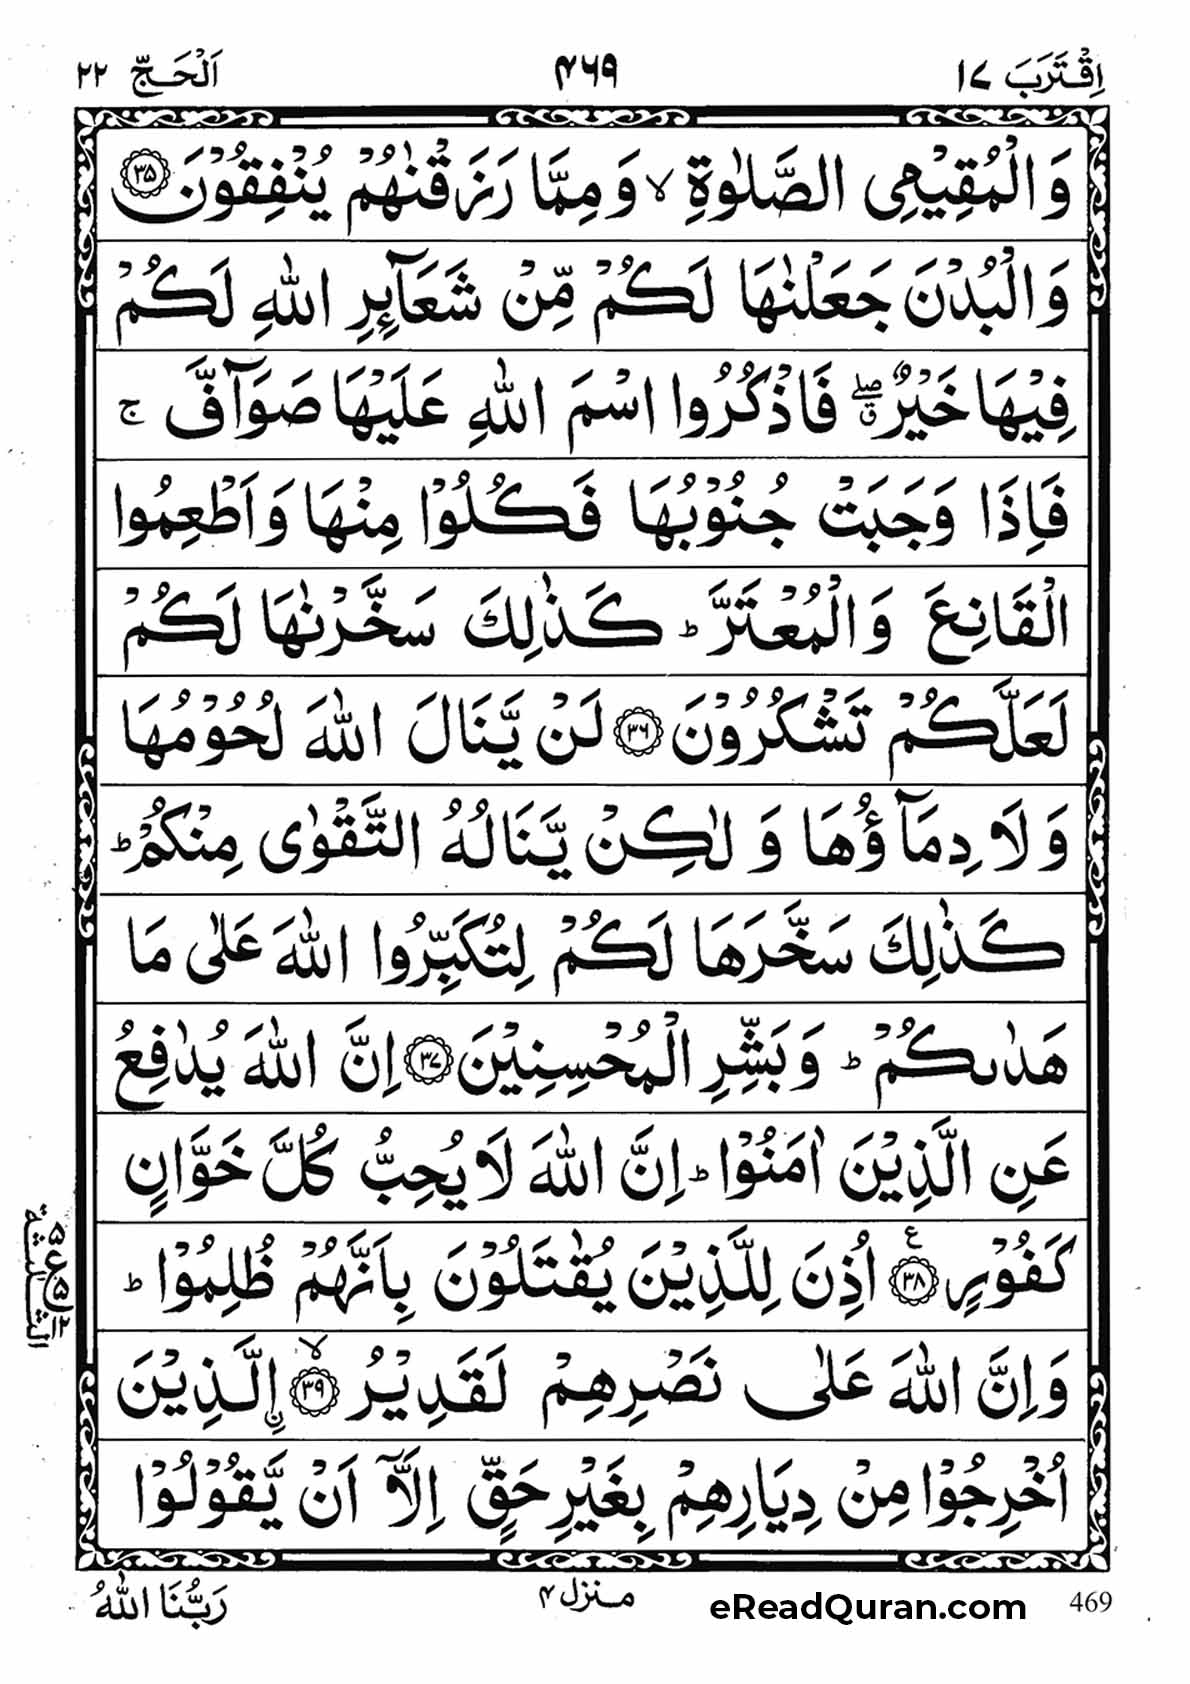 اِقْتَرَبَ ١٧
٤٦٩
اَلْحَجّ ٢٢
وَالْمُقِيْمِى الصَّلٰوةِ ۙ وَمِمَّا رَزَقْنٰهُمْ يُنْفِقُوْنَ ﴿۳۵﴾
وَالْبُدْنَ جَعَلْنٰهَا لَكُمْ مِّنْ شَعَآئِرِ اللّٰهِ لَكُمْ
فِيْهَا خَيْرٌ ۖۗ فَاذْكُرُوا اسْمَ اللّٰهِ عَلَيْهَا صَوَآفَّ ۚ
فَاِذَا وَجَبَتْ جُنُوْبُهَا فَكُلُوْا مِنْهَا وَاَطْعِمُوا
الْقَانِعَ وَالْمُعْتَرَّ ؕ كَذٰلِكَ سَخَّرْنٰهَا لَكُمْ
لَعَلَّكُمْ تَشْكُرُوْنَ ﴿۳۶﴾ لَنْ يَّنَالَ اللّٰهَ لُحُوْمُهَا
وَلَا دِمَآؤُهَا وَلٰكِنْ يَّنَالُهُ التَّقْوٰى مِنْكُمْ ؕ
كَذٰلِكَ سَخَّرَهَا لَكُمْ لِتُكَبِّرُوا اللّٰهَ عَلٰى مَا
هَدٰىكُمْ ؕ وَبَشِّرِ الْمُحْسِنِيْنَ ﴿۳۷﴾ اِنَّ اللّٰهَ يُدٰفِعُ
عَنِ الَّذِيْنَ اٰمَنُوْا ؕ اِنَّ اللّٰهَ لَا يُحِبُّ كُلَّ خَوَّانٍ
كَفُوْرٍ ﴿۳۸﴾ ع اُذِنَ لِلَّذِيْنَ يُقٰتَلُوْنَ بِاَنَّهُمْ ظُلِمُوْا ؕ
وَاِنَّ اللّٰهَ عَلٰى نَصْرِهِمْ لَقَدِيْرُ ﴿۳۹﴾ ۙ ۨالَّذِيْنَ
اُخْرِجُوْا مِنْ دِيَارِهِمْ بِغَيْرِ حَقٍّ اِلَّآ اَنْ يَّقُوْلُوْا
رَبُّنَا اللّٰهُ
منزل ٤
eReadQuran.com
469